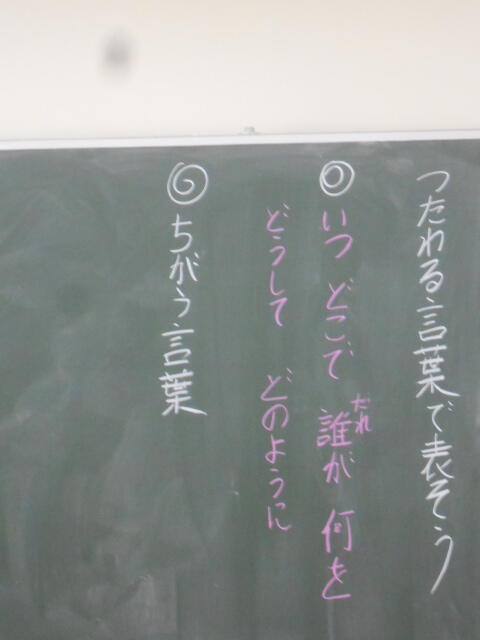 つたわる言葉で表そう
◎いつ どこで 誰が 何を
だれ
どうして どのように
◎ちがう言葉